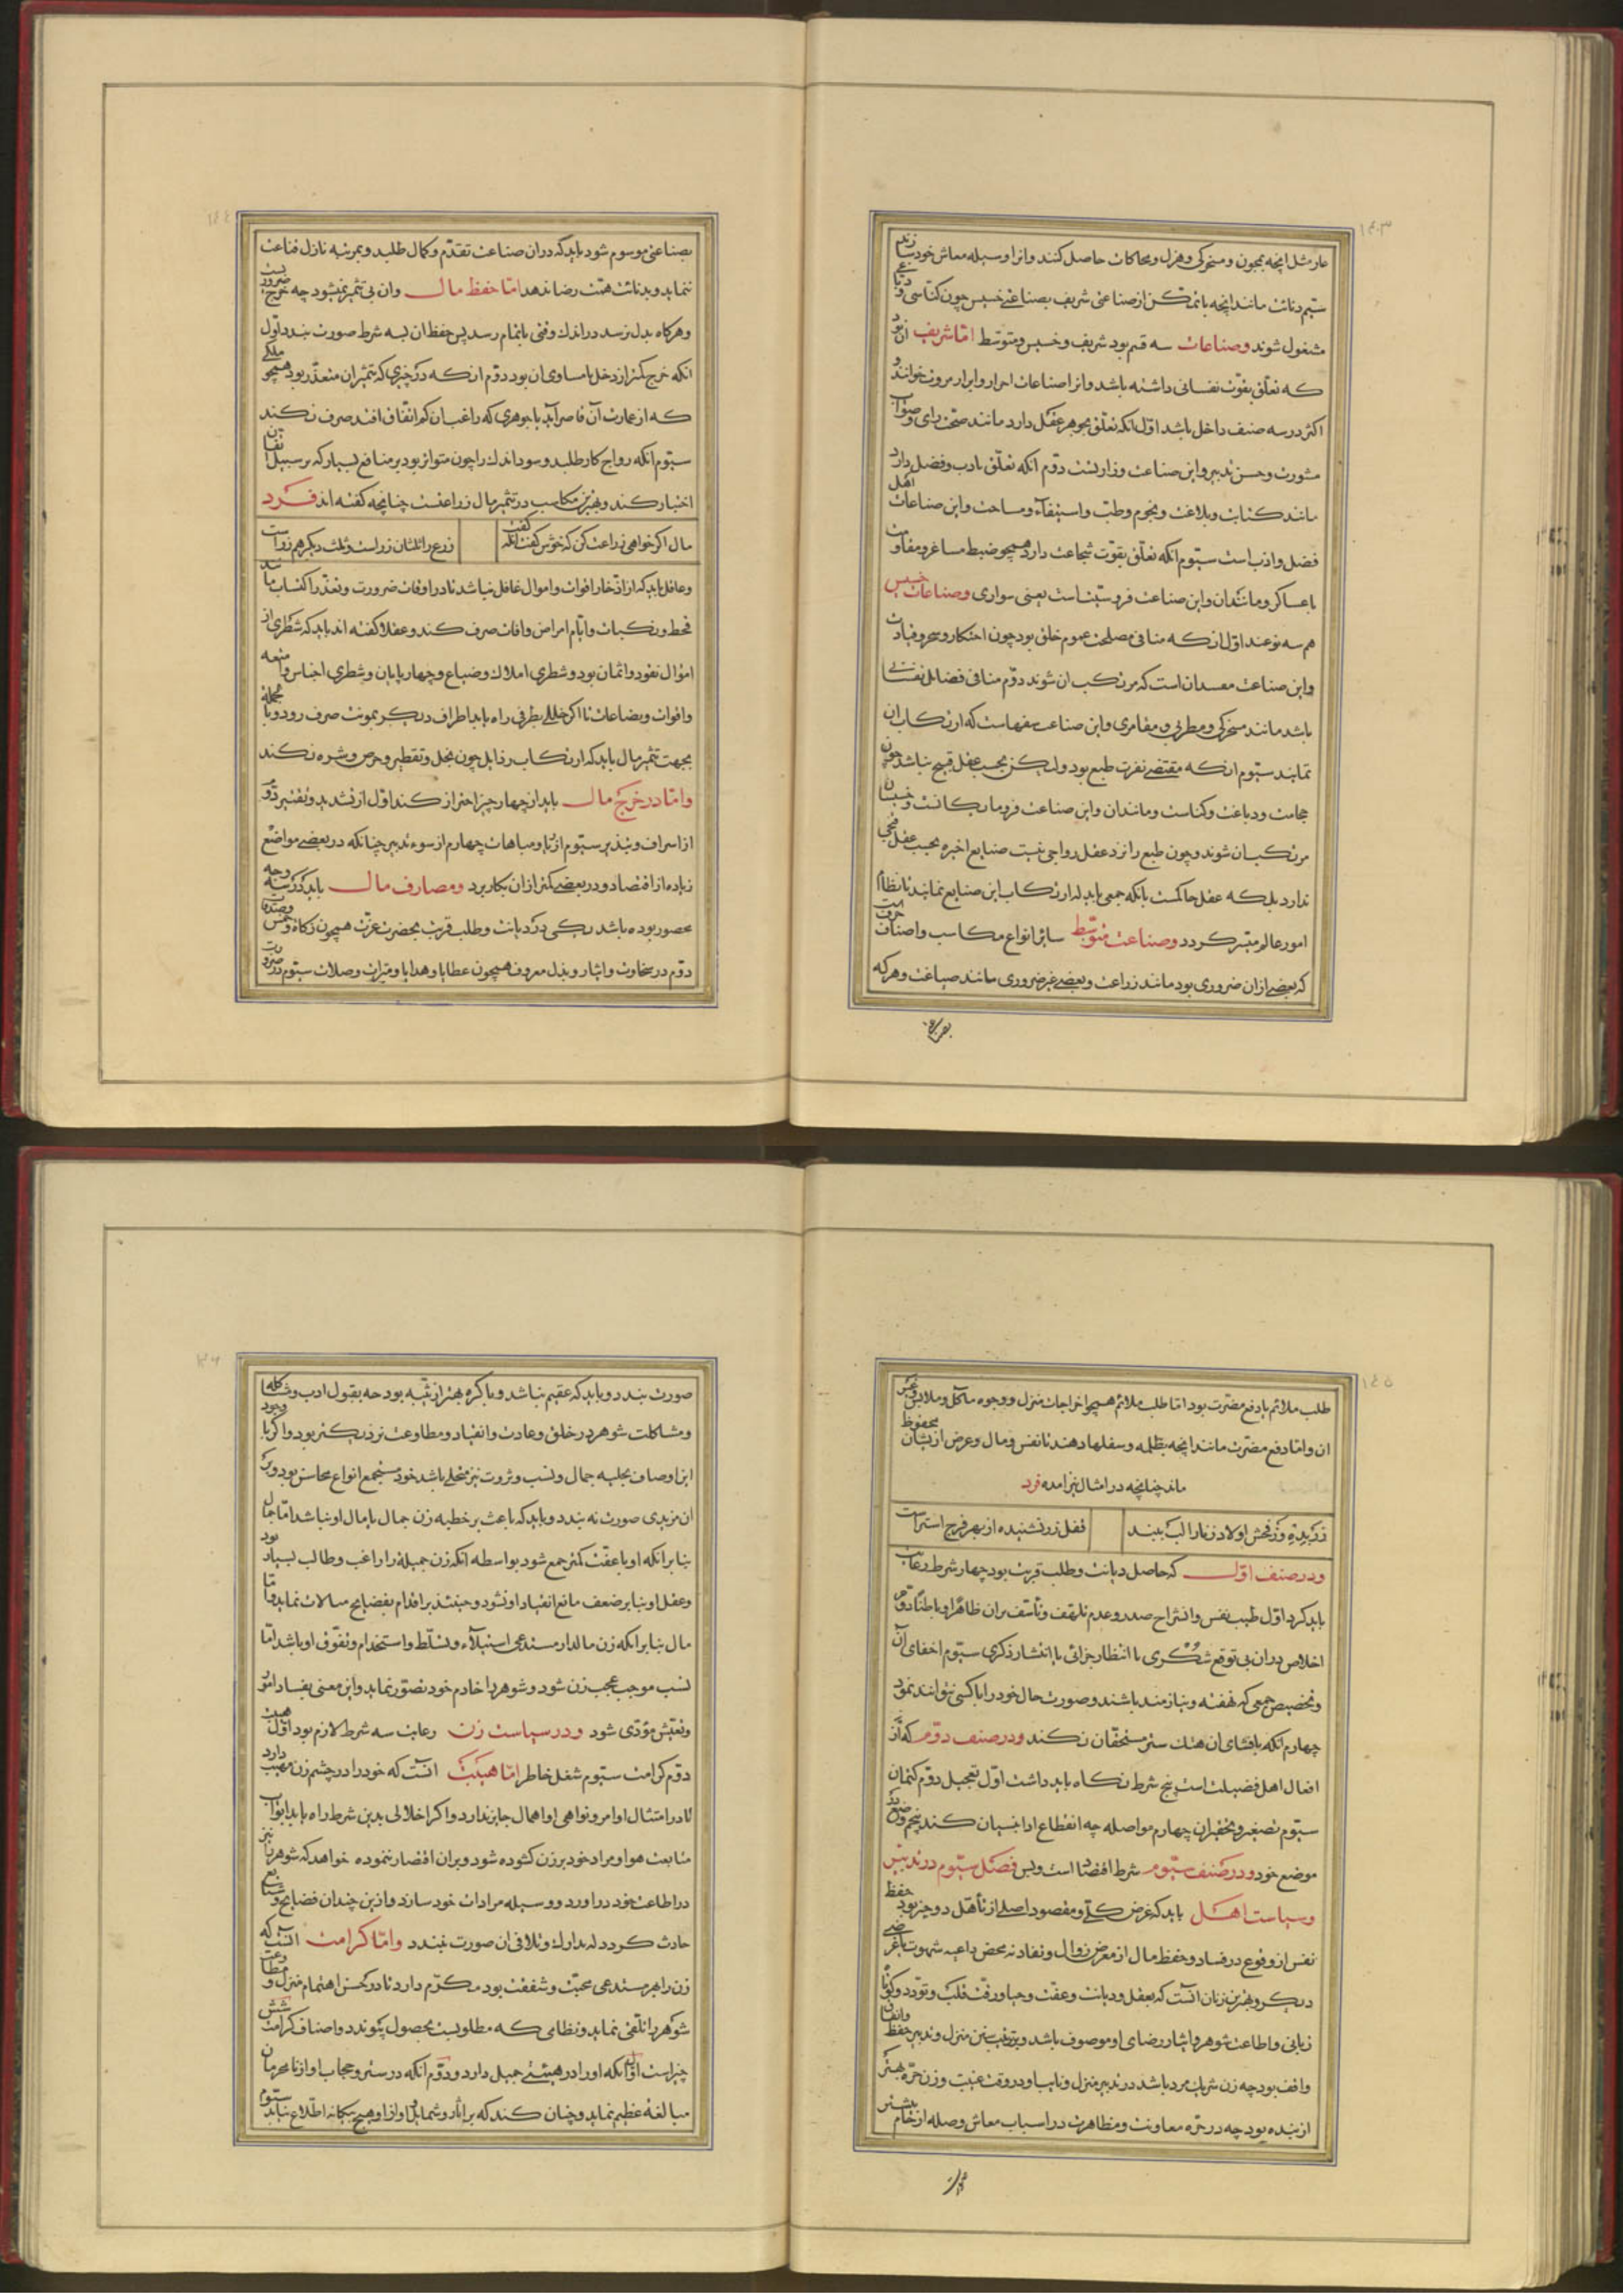 ١٤٣
عار مثل آنچه بمجون و مسخرکی و هزل و محاکات حاصل کنند و انرا وسیله معاش خود سازند
سیّم دنائت مانند آنچه با تمکّن از صناعتی شریف بصناعتی خسیس چون کنّاسی و دبّاغی
مشغول شوند وصناعات سه قسم بود شریف و خسیس و متوسّط امّا شریف آن بود
که تعلّق بقوّت نفسانی داشته باشد و انرا صناعات احرار و ابرار مروت خوانند و
اکثر در سه صنف داخل باشد اوّل آنکه تعلّق بجوهر عقل دارد مانند صحّت رای و صواب
مشورت و حسن تدبیر و این صناعت وزارتست دوّم آنکه تعلّق بادب و فضل دارد
مانند کتابت و بلاغت و نجوم و طبّ و استیفاء و مساحت و این صناعات اهل
فضل و ادب است سیّوم آنکه تعلّق بقوّت شجاعت دارد همچو ضبط مساغر و مقاومت
با عساکر و مانند آن و این صناعت فروسیّت است یعنی سواری وصناعات خسیس
هم سه نوعند اوّل آنکه منافی مصلحت عموم خلق بود چون احتکار و سحر و قیادت
و این صناعت مفسدان است که مرتکب ان شوند دوّم منافی فضایل نفسانی
باشد مانند مسخرکی و مطربی و مقامری و این صناعت سفهاست که ارتکاب ان
نمایند سیّوم آنکه مقتضی نفرت طبع بود ولیکن بحسب عقل قبیح نباشد چون
حجامت و دباغت و کناست و مانند ان و این صناعت فرومایکانست و خسیسان
مرتکب ان شوند و چون طبع را نزد عقل رواجی نیست صنایع اخیره بحسب عقل قبحی
ندارد بلکه عقل حاکمست بانکه جمعی باید که ارتکاب این صنایع نمایند تا نظام
امور عالم میسّر کردد وصناعت متوسّط سایر انواع مکاسب و اصناف حرفت است
که بعضی از ان ضروری بود مانند زراعت و بعضی غیر ضروری مانند صیاغت و هر که
بصناعتی
١٤٤
بصناعتی موسوم شود باید که در ان صناعت تقدّم و کمال طلبد و بمرتبه نازل قناعت
ننماید و بدنائت همّت رضا ندهد امّا حفظ مال وان بی تثمیر نمیشود چه خرج ضروریست
و هرگاه بدل نرسد در اندک وقتی باتمام رسد پس حفظ ان بسه شرط صورت بندد اوّل
آنکه خرج کمتر از دخل یا مساوی ان بود دوّم آنکه در چیزی که تثمیر ان متعذّر بود همچو ملکی
که از عمارت آن قاصر آید یا جوهری که راغب ان کم اتّفاق افتد صرف نکند
سیّوم آنکه رواج کار طلبد و سود اندک را چون متواتر بود بر منافع بسیار که بر سبیل اتّفاق
اختیار کند و بهترین مکاسب در تثمیر مال زراعتست چنانچه کفته اند فرد
مال اکر خواهی زراعت کن که خوش کفت آنکه کفت
زرع را ثلثان زر است و ثلث دیکر هم زر است
و عاقل باید که از ادّخار اقوات و اموال غافل نباشد تا در اوقات ضرورت و تعذّر اکتساب مانند
قحط و نکبات و ایّام امراض و افات صرف کند و عقلا کفته اند باید که شطری از
اموال نقود و اثمان بود و شطری املاک و ضیاع و چهارپایان و شطری اجناس و امتعه
و اقوات و بضاعات تا اکر خللی بطرفی راه یابد اطراف دیکر بمونت صرف رود و بالجمله
بجهت تثمیر مال باید که ارتکاب رذایل چون بخل و تقطیر و حرص و شره نکند
وامّا در خرج مال باید از چهار چیز احتراز کند اوّل از تشدید و تقتیر دوّم
از اسراف و تبذیر سیّوم از ریا و مباهات چهارم از سوء تدبیر چنانکه در بعضی مواضع
زیاده از اقتصاد و در بعضی کمتر از ان بکار برد ومصارف مال باید که در سه وجه
محصور بوده باشد یکی در دیانت و طلب قربت بحضرت عزّت همچون زکاة و خمس و صدقات
دوّم در سخاوت و ایثار و بذل معروف همچون عطایا و هدایا و مبرّات و صلات سیّوم در ضرورت
١٤٥
طلب ملائم یا دفع مضرّت بود امّا طلب ملائم همچو اخراجات منزل و وجوه مآکل و ملابس و غیر
ان و امّا دفع مضرّت مانند آنچه بظلمه و سفلها دهند تا نفس و مال و عرض از ایشان محفوظ
ماند چنانچه در امثال نیز امده فرد
قفل زر نشنیده از بهر فرج استر است
ودر صنف اوّل که حاصل دیانت و طلب قربت بود چهار شرط رعایت
باید کرد اوّل طیب نفس و انشراح صدر و عدم تلهّف و تأسّف بران ظاهرا و باطنا دوّم
اخلاص دران بی توقع شکری با انتظار جزائی یا انتشار ذکری سیّوم اخفای آن
و تخصیص جمعی که نهفته و نیازمند باشند و صورت حال خود را با کسی نتوانند نمود
چهارم آنکه بافشای ان هتک ستر مستحقّان نکند ودر صنف دوّم که از
افعال اهل فضیلت است پنج شرط نکاه باید داشت اوّل تعجیل دوّم کتمان
سیّوم تصغیر و تحقیر ان چهارم مواصله چه انقطاع انرا بنسیان کند پنجم وضع در
موضع خود ودر صنف سیّوم شرط اقتصاد است و بس فصل سیّوم در تدبیر
وسیاست اهل باید که غرض کلّی و مقصود اصلی از تأهّل دو چیز بود حفظ
نفس از وقوع در فساد و حفظ مال از معرض زوال و نفاد نه محض داعیه شهوت یا غرضی
دیکر و بهترین زنان آنست که بعقل و دیانت و عفّت و حیا و رقّت قلب و تودّد و کوتاه
زبانی و اطاعت شوهر و ایثار رضای او موصوف باشد و بترتیب منزل و تدبیر حفظ
واقف بود چه زن شریک مرد باشد در تدبیر منزل و نایب او در وقت غیبت و زن حرّه بهتر
از بنده بود چه در حرّه معاونت و مظاهرت در اسباب معاش و صله ارحام بیشتر
صورت
١٤٦
صورت بندد و باید که عقیم نباشد و باکره بهتر از ثیّبه بود چه بقبول ادب و مشاکله
و مشاکلت شوهر در خلق و عادت و انقیاد و مطاوعت نزدیکتر بود و اکر با وجود
این اوصاف بحلیه جمال و نسب و ثروت نیز متحلّی باشد خود مستجمع انواع محاسن بود و بر
ان مزیدی صورت نه بندد و باید که باعث بر خطبه زن جمال یا مال او نباشد امّا جمال
بنا بر آنکه او با عفّت کمتر جمع شود بواسطه آنکه زن جمیله را راغب و طالب بسیار بود
و عقل او بنا بر ضعف مانع انقیاد او نشود و حینئذ بر اقدام بفضایح مبالات ننماید و امّا
مال بنا بر آنکه زن مالدار مستدعی استیلاء و تسلّط و استخدام و تفوّق او باشد امّا
نسب موجب عجب زن شود و شوهر را خادم خود تصوّر نماید و این معنی بفساد امور
و تعیّش مؤدّی شود ودر سیاست زن رعایت سه شرط لازم بود اوّل هیبت
دوّم کرامت سیّوم شغل خاطر امّا هیبت آنست که خود را در چشم زن مهیب دارد
تا در امتثال اوامر و نواهی او اهمال جایز ندارد و اکر اخلالی بدین شرط راه یابد ابواب
متابعت هوا و مراد خود بر زن کشوده شود و بران اقتصار ننموده خواهد که شوهر نیز
در اطاعت خود در اورد و وسیله مرادات خود سازد و ازین چندان فضایح و شنایع
حادث کردد که تدارک و تلافی ان صورت نبندد وامّا کرامت آنست که
زن را هر چه مستدعی محبّت و شفقت بود مکرّم دارد تا در حسن اهتمام منزل و مطاوعت
شوهر را تلقّی نماید و نظامی که مطلوبست بحصول پیوندد و اصناف کرامت شش
چیز است اوّل آنکه او را در هیئتی جمیل دارد و دوّم آنکه در ستر و حجاب او از نامحرمان
مبالغه عظیم نماید و چنان کند که بر آثار و شمایل و اواز او هیچ بیکانه اطّلاع نیابد سیّوم